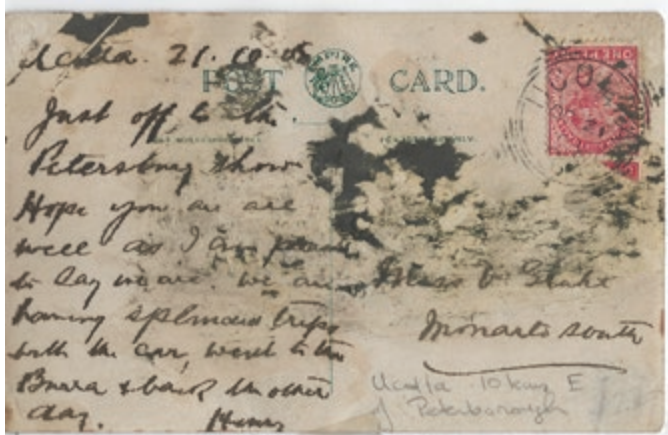 Ucolta. 21.10.08
POST CARD.
EMPIRE
ONE PENNY
UCOL
Just off to the
Petersburg Show
Hope you are
well as I am
to say we are. we are
having splendid trips
with the car, went to the
Burra & back the other
day. Henry
Miss
Monarto South
Ucolta 10 km E
of Peterborough